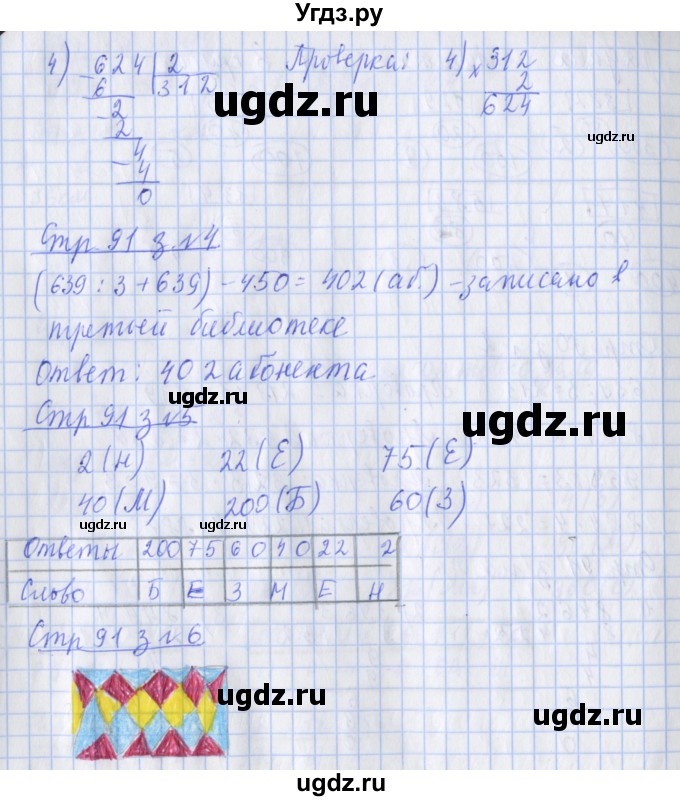 Угдз.ру
4) 624 | 2    Проверка:    4) × 312
- 6    312    2
- 2    624
2
- 4
4
0
ugdz.ru
ugdz.ru
ugdz.ru
Стр 91 з №4
(639 : 3 + 639) - 450 = 402 (аб.) - записано в
третьей библиотеке
Ответ: 402 абонента
ugdz.ru
ugdz.ru
Стр 91 з №5
2 (Н)    22 (Е)    75 (Е)
40 (М)    200 (Б)    60 (З)
ugdz.ru
ugdz.ru
Ответы 200 75 60 40 22 2
Слово Б Е З М Е Н
ugdz.ru
ugdz.ru
Стр 91 з №6
ugdz.ru
ugdz.ru
ugdz.ru